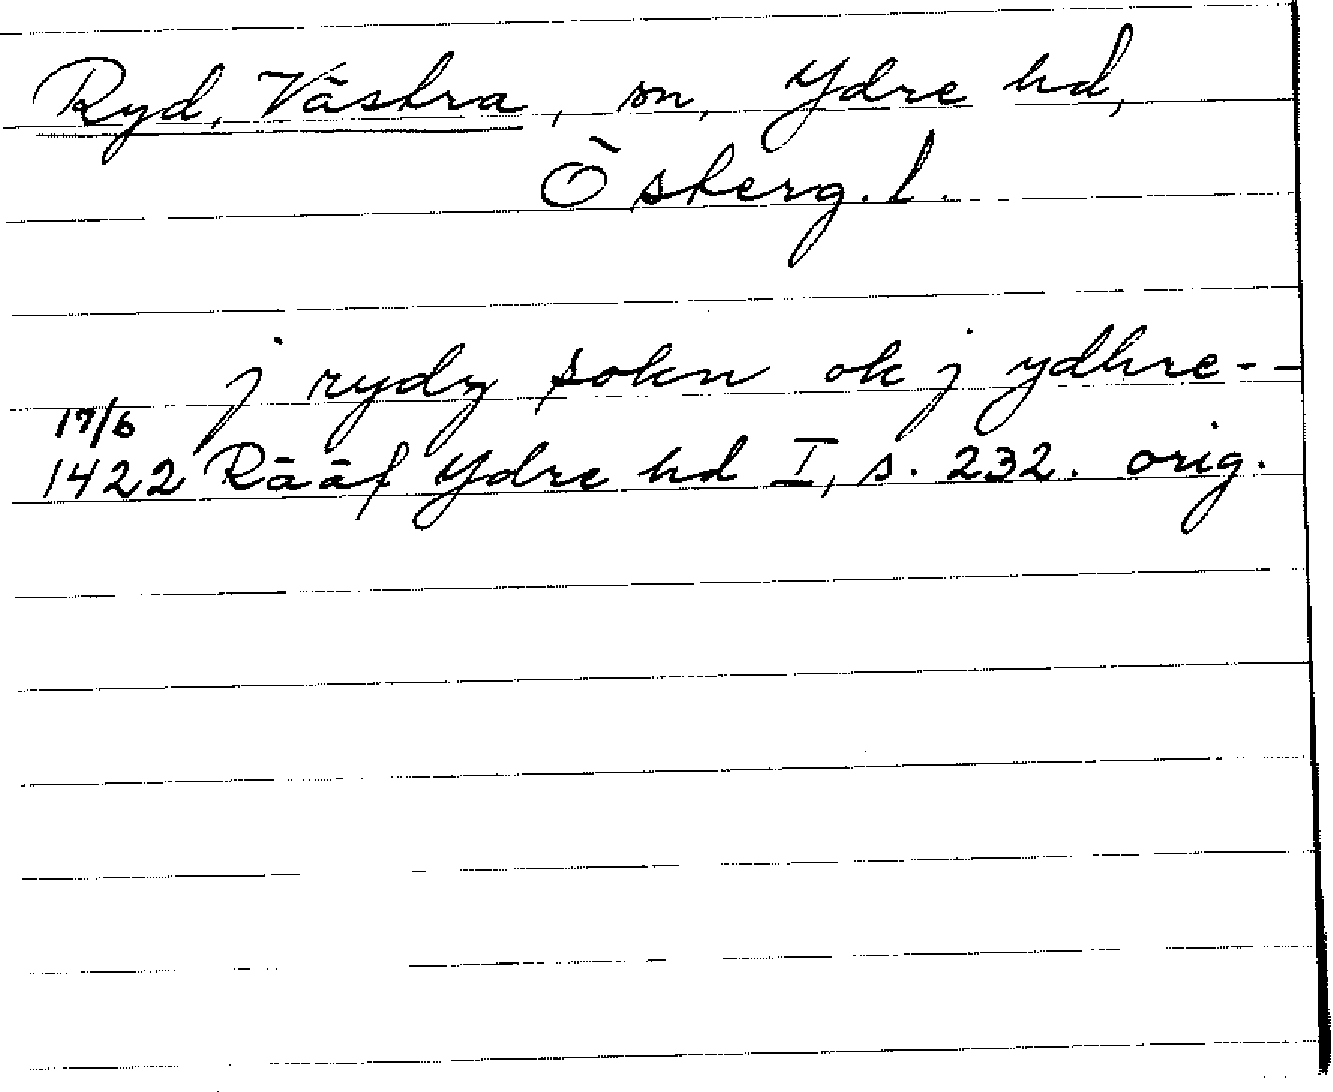 Ryd, Västra, sn, Ydre hd,
Österg. l.
j rydz sokn ok j ydhre--
17/6
1422 Rääf Ydre hd I, s. 232. orig.